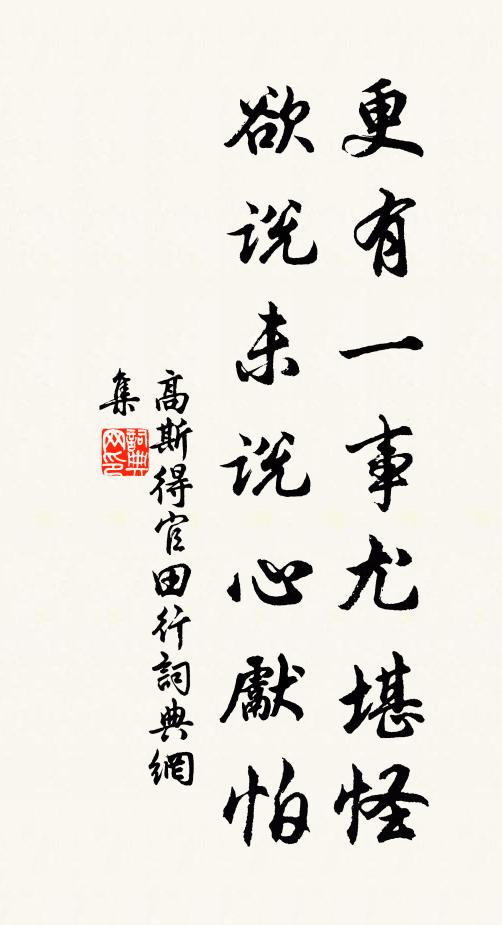 更有一事尤堪怪
欲説未説心獻怕
高斯得官田行詞典網
集
詞典
网印